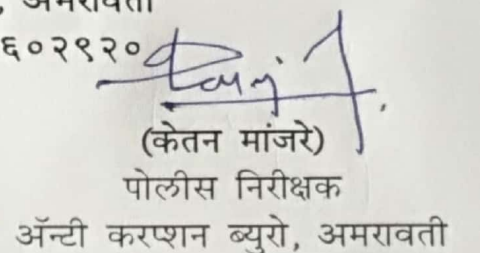 , अमरावती
६०२९२०
(केतन मांजरे)
पोलीस निरीक्षक
ॲन्टी करप्शन ब्युरो, अमरावती